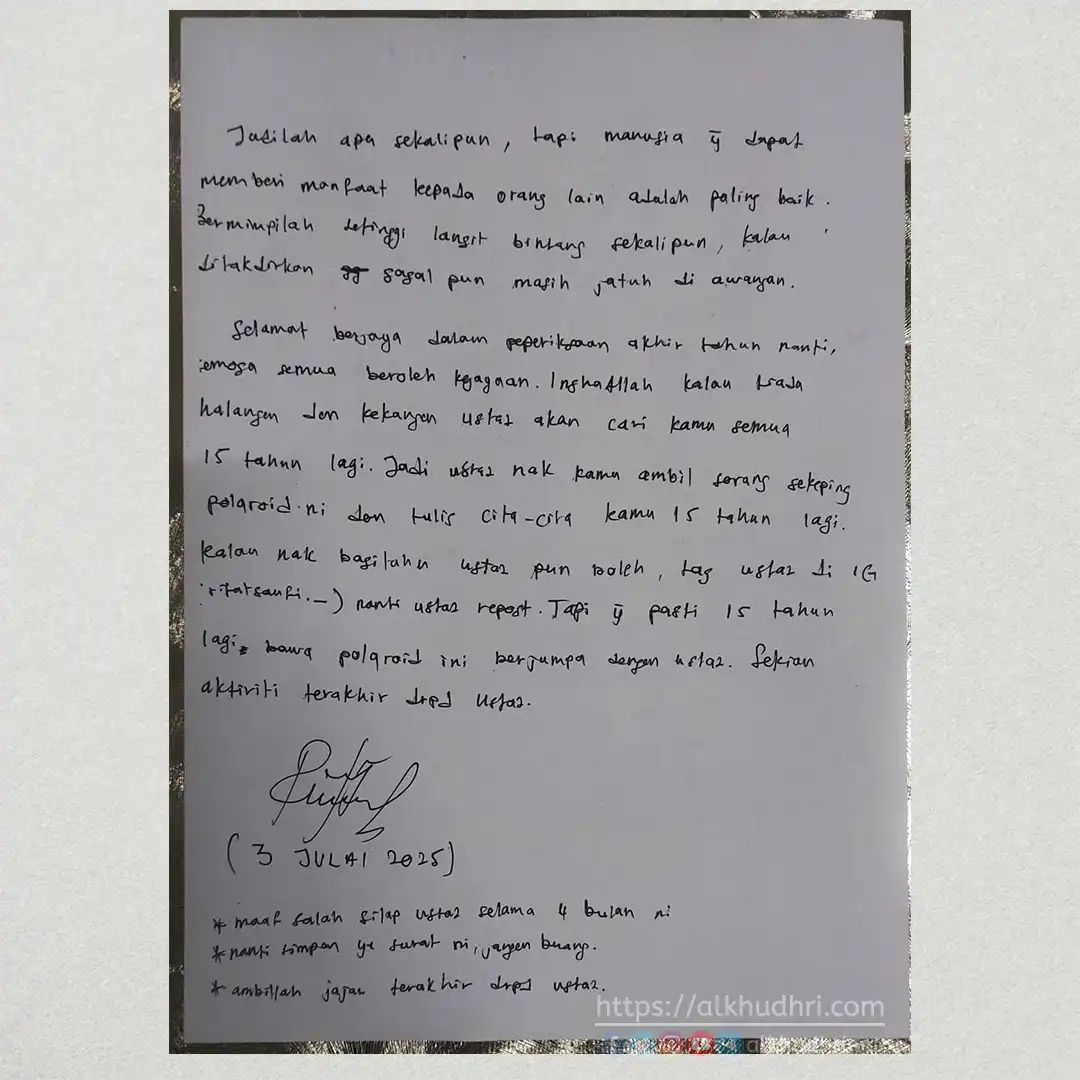 Jadilah apa sekalipun, tapi manusia ȳ dapat
memberi manfaat kepada orang lain adalah paling baik.
Bermimpilah setinggi langit bintang sekalipun, kalau
ditakdirkan gagal pun masih jatuh di awangan.
Selamat berjaya dalam peperiksaan akhir tahun nanti,
semoga semua beroleh kejayaan. InshaAllah kalau tiada
halangan dan kekangan ustaz akan cari kamu semua
15 tahun lagi. Jadi ustaz nak kamu ambil sorang sekeping
polaroid ni dan tulis cita-cita kamu 15 tahun lagi.
Kalau nak bagitahu ustaz pun boleh, tag ustaz di IG
nanti ustaz repost. Tapi ȳ pasti 15 tahun
lagi bawa polaroid ini berjumpa dengan ustaz. Sekian
aktiviti terakhir drpd ustaz.
(3 JULAI 2025)
* maaf salah silap ustaz selama 4 bulan ni
* nanti simpan ye surat ni, jangan buang.
* ambillah jajan terakhir drpd ustaz.
https://alkhudhri.com